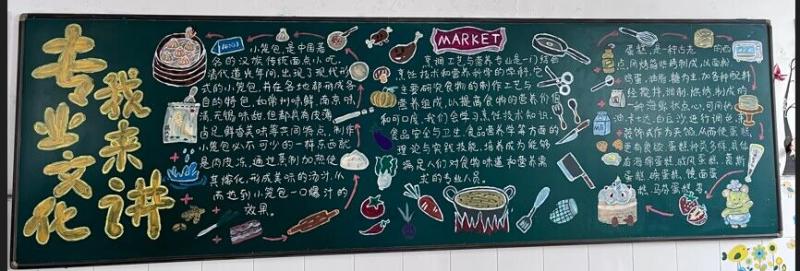 专业文化
我来讲
小笼包,是中国著
名的汉族传统面点小吃,
清代道光年间,出现了现代形
式的小笼包,并在各地都形成各
自的特色,如常州味鲜,南京味
清,无锡味甜,但都具有皮薄
卤足,鲜香美味等共同特点,制作
小笼包必不可少的一样东西就
是肉皮冻,通过蒸制加热使
其熔化,形成美味的汤汁,从
而达到小笼包一口爆汁的
效果。
MARKET
烹调工艺与营养专业是一门结合
烹饪技术和营养科学的学科,它
主要研究食物的制作工艺与
营养组成,以提高食物的营养价值
和可口度,我们会学习烹饪技术知识,
食品安全与卫生,食品营养学等方面的
理论与实践技能,培养成为能够
满足人们对食物味道和营养需
求的专业人员。
蛋糕,是一种古老的西
点,用烤箱烤制而成,以面粉
鸡蛋,油脂,糖为主,加各种配料
经搅拌,调制,烘烤,制成的
一种海绵状点心,可用奶
油,卡士达,白豆沙进行调味